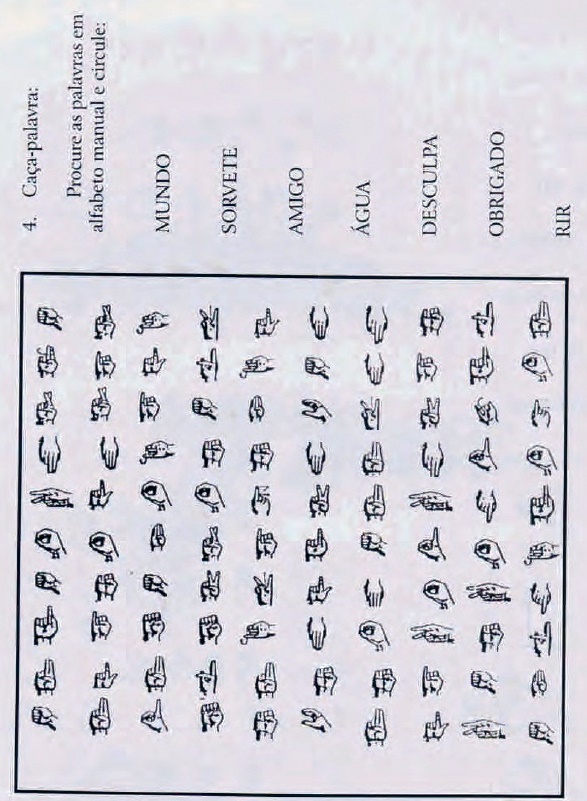 4. Caça-palavra:
Procure as palavras em
alfabeto manual e circule:
MUNDO
SORVETE
AMIGO
ÁGUA
DESCULPA
OBRIGADO
RIR